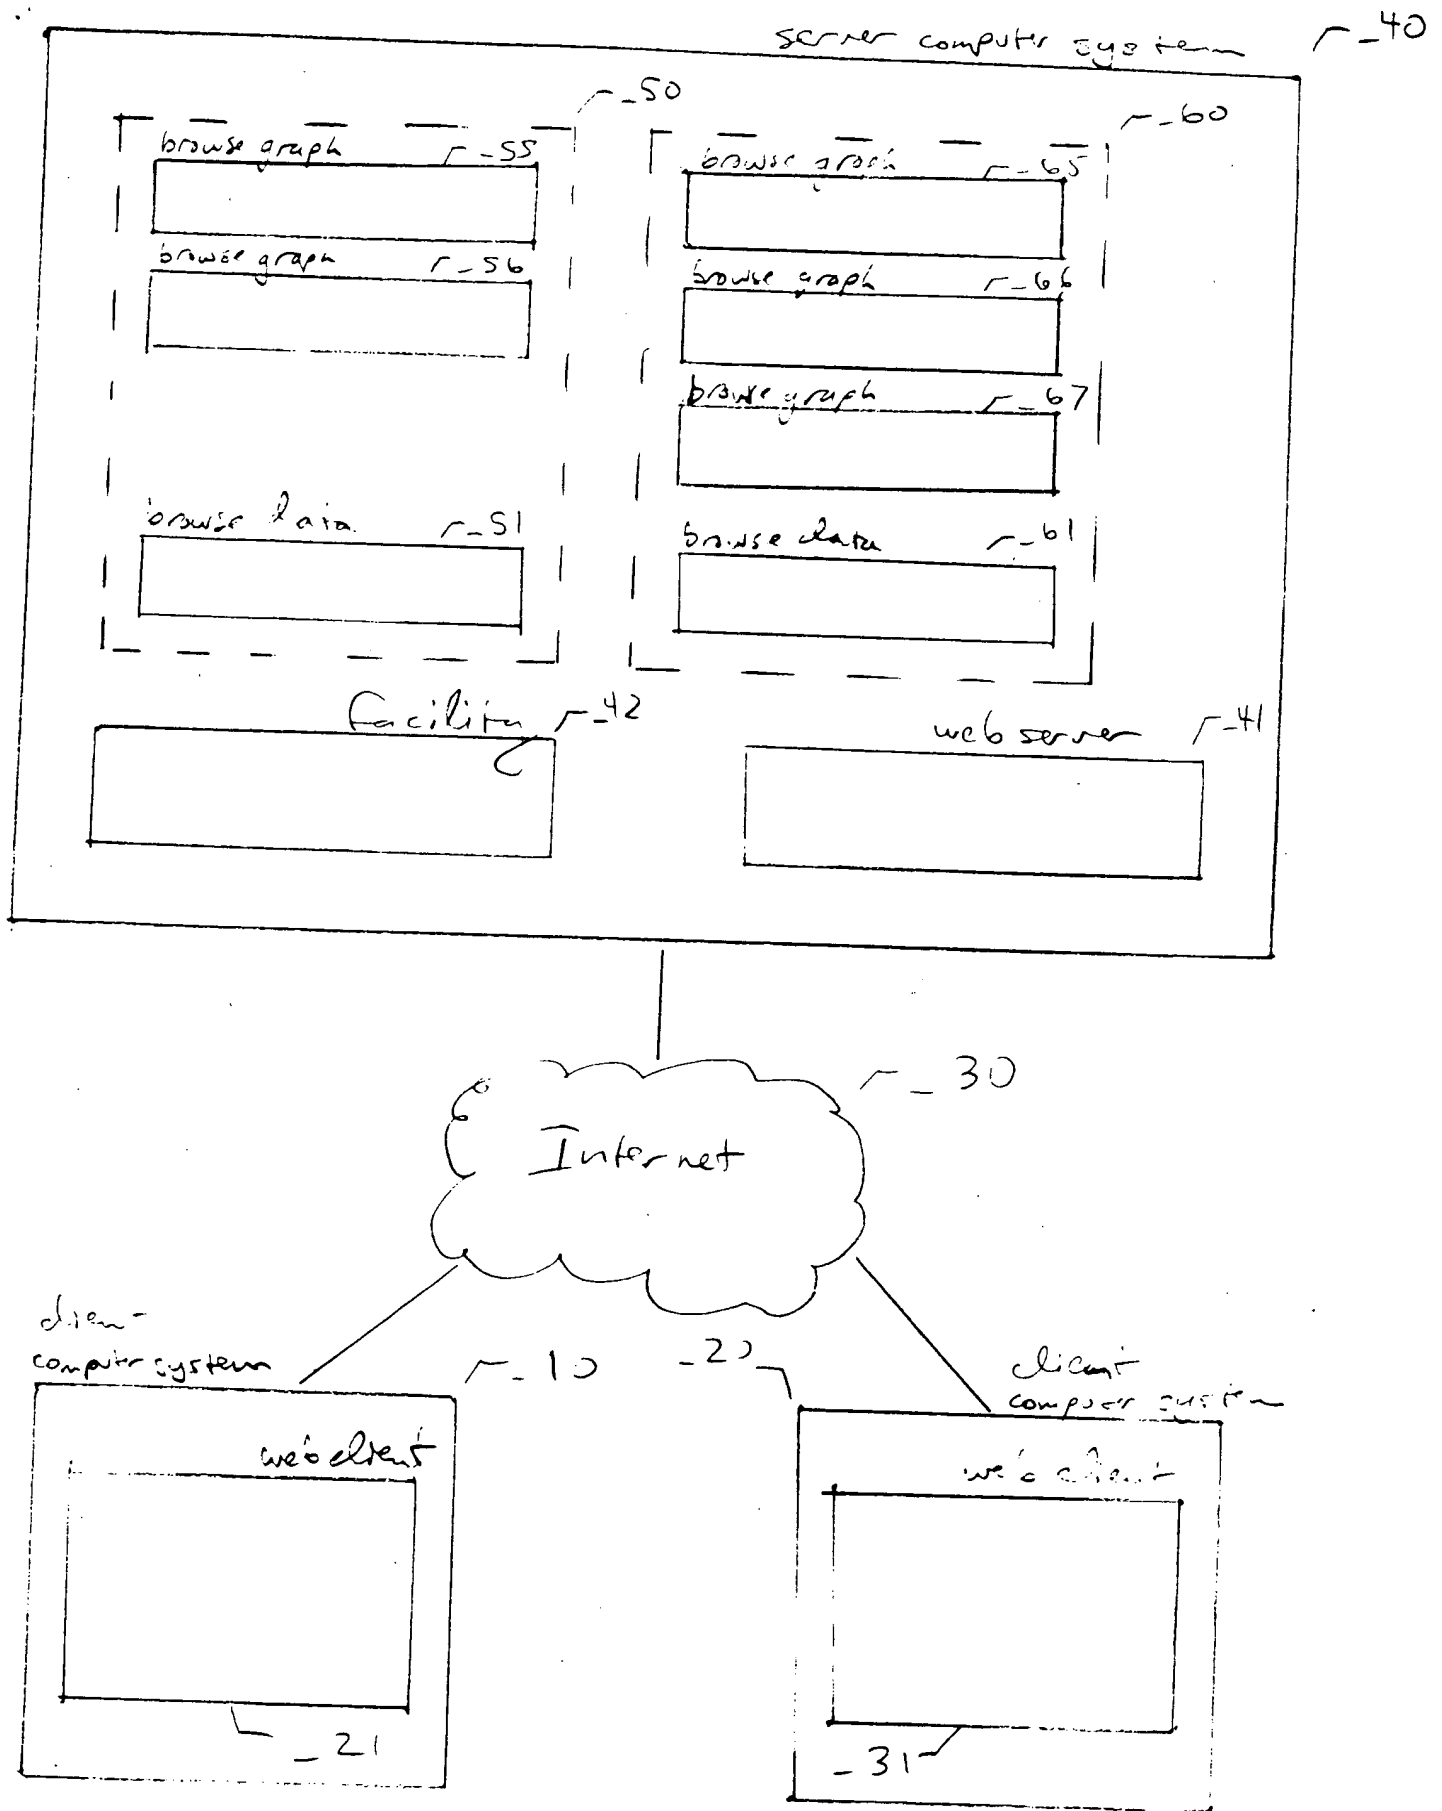 server computer system _40
_50
_60
browse graph _55
browse graph _65
browse graph _56
browse graph _66
browse graph _67
browse data _51
browse data _61
facility _42
web server _41
_30
Internet
client
computer system
_10
_20
client
computer system
web client
web client
_21
_31